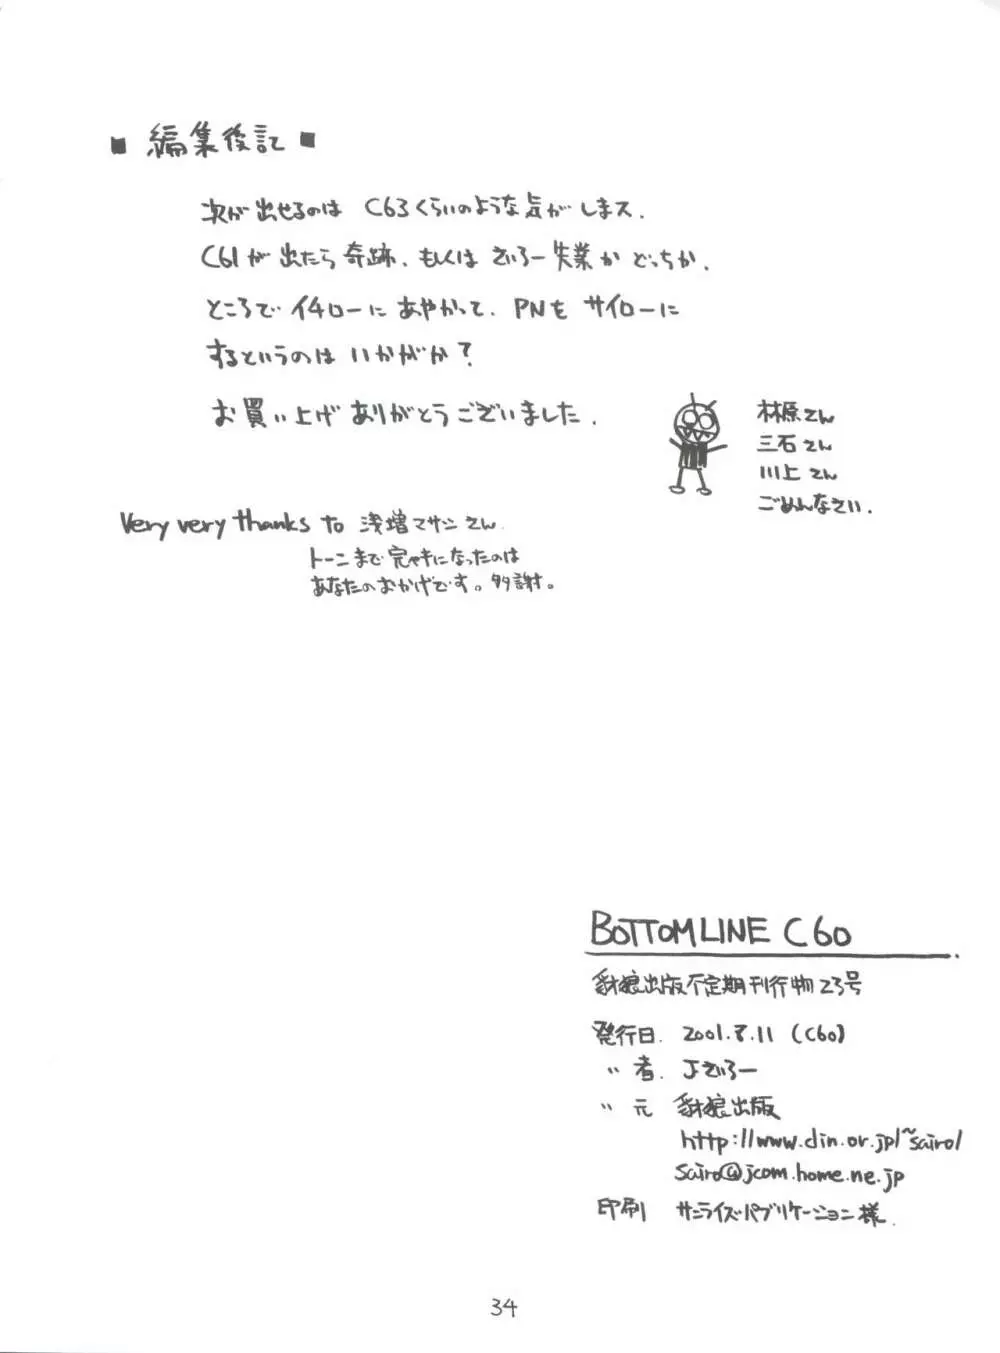 ■ 編集後記 ■
次が出せるのは C63くらいのような気がしまス.
C61が出たら奇跡、もしくは さいろー失業か どっちか.
ところで イチローに あやかって、PNを サイローに
するというのは いかがか?
お買い上げ ありがとうございました.
林原さん
三石さん
川上さん
ごめんなさい.
Very very thanks to 浅増マサシさん.
トーンまで完ペキになったのは
あなたのおかげです。多謝。
BOTTOMLINE C60
豺狼出版不定期刊行物23号
発行日. 2001.8.11 (C60)
〃 者. Jさいろー
〃 元 豺狼出版
http://www.din.or.jp/~sairo/
sairo@jcom.home.ne.jp
印刷 サンライズ・パブリケーション様.
34